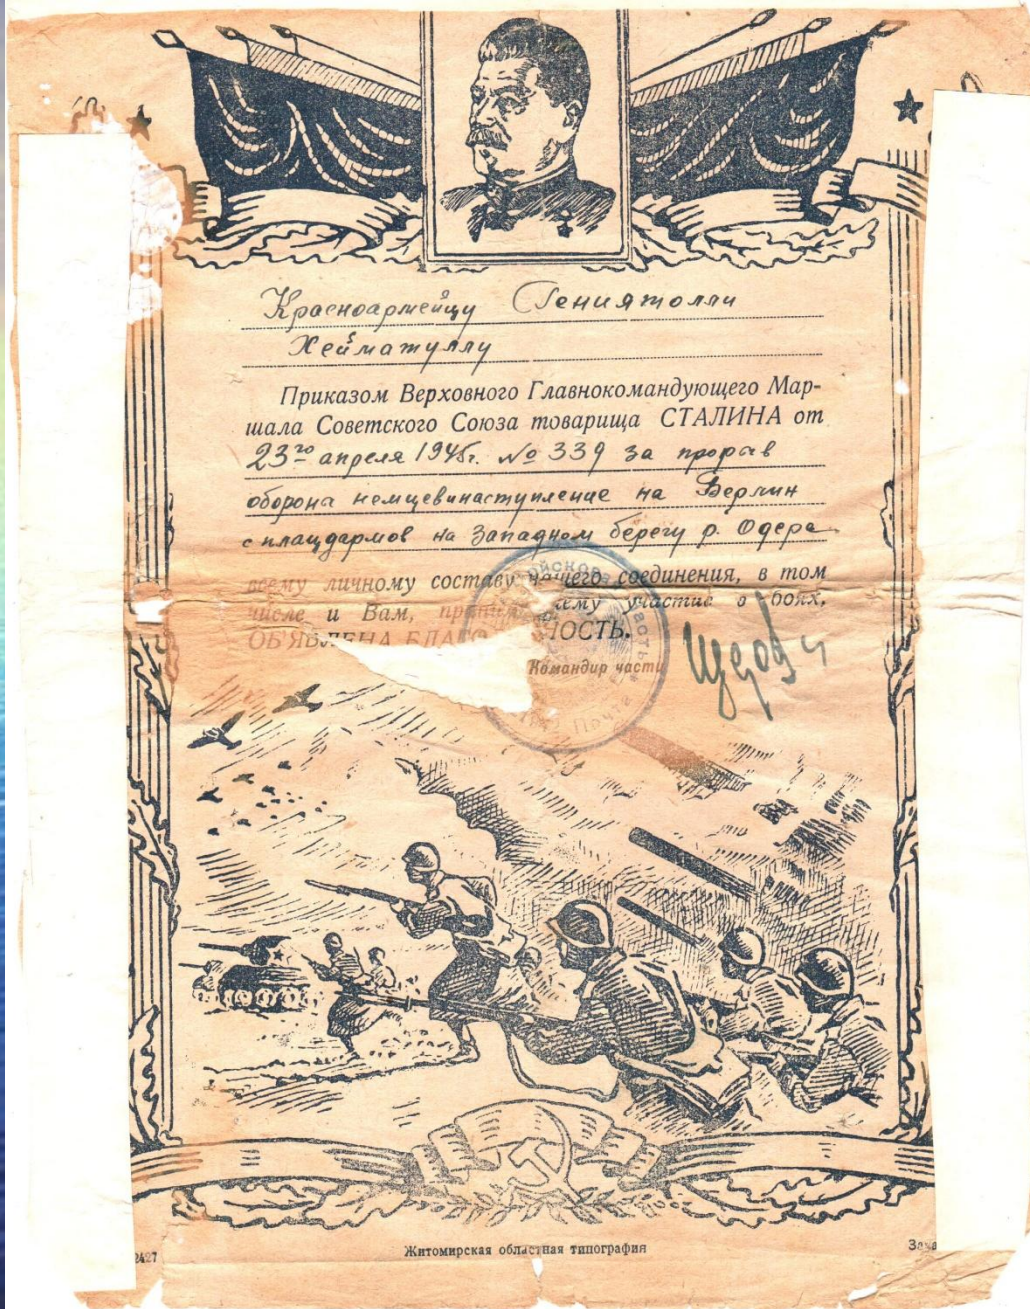 Красноармейцу Гениятолли
Хейматуллу
Приказом Верховного Главнокомандующего Мар-
шала Советского Союза товарища СТАЛИНА от
23го апреля 1945г. № 339 за прорыв
оборона немцев и наступление на Берлин
с плацдармов на Западном берегу р. Одера
всему личному составу нашего соединения, в том
числе и Вам, принимавшему участие в боях,
ОБ'ЯВЛЕНА БЛАГО НОСТЬ.
Командир части
Житомирская областная типография
2427